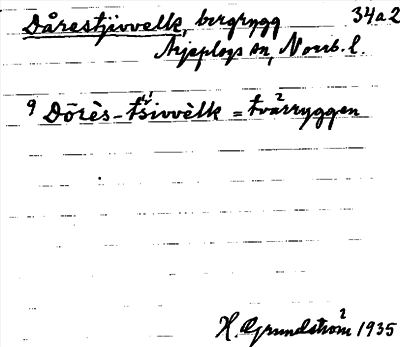 Dårestjivvelk, bergrygg 34a2
Arjeplogs sn, Norrb. l.
9 Dōrès-tšivvèlk = tvärryggen
H. Grundström 1935